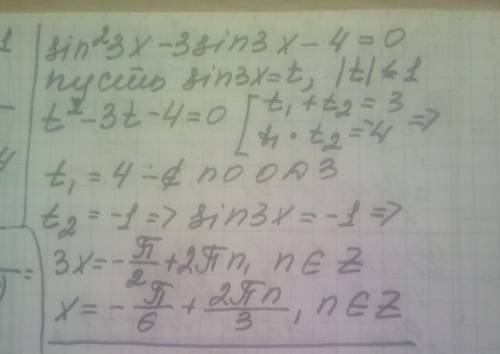 sin²3x-3sin3x-4=0
пусть sin3x=t, |t|≤1
t²-3t-4=0 [t₁+t₂=3
t₁·t₂=-4 =>
t₁=4 -∉ по ОДЗ
t₂=-1 => sin3x=-1 =>
3x=-π/2+2πn, n∈Z
x=-π/6+2πn/3, n∈Z